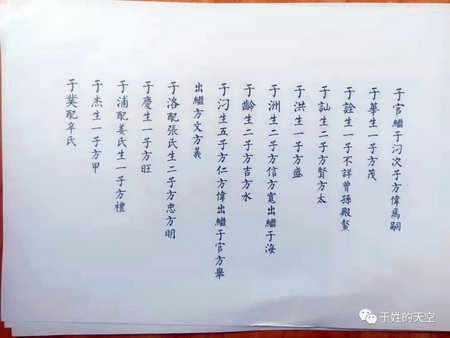 于官繼于汈次子方偉爲嗣
于華生一子方茂
于詮生一子不詳曾孫殿鰲
于訕生二子方賢方太
于洪生一子方盛
于洲生二子方信方寬出繼于海
于齡生二子方吉方水
于汈生五子方仁方偉出繼于官方舉
出繼方文方義
于洛配張氏生二子方忠方明
于慶生一子方旺
于浦配姜氏生一子方禮
于杰生一子方甲
于冀配辛氏
于姓的天空